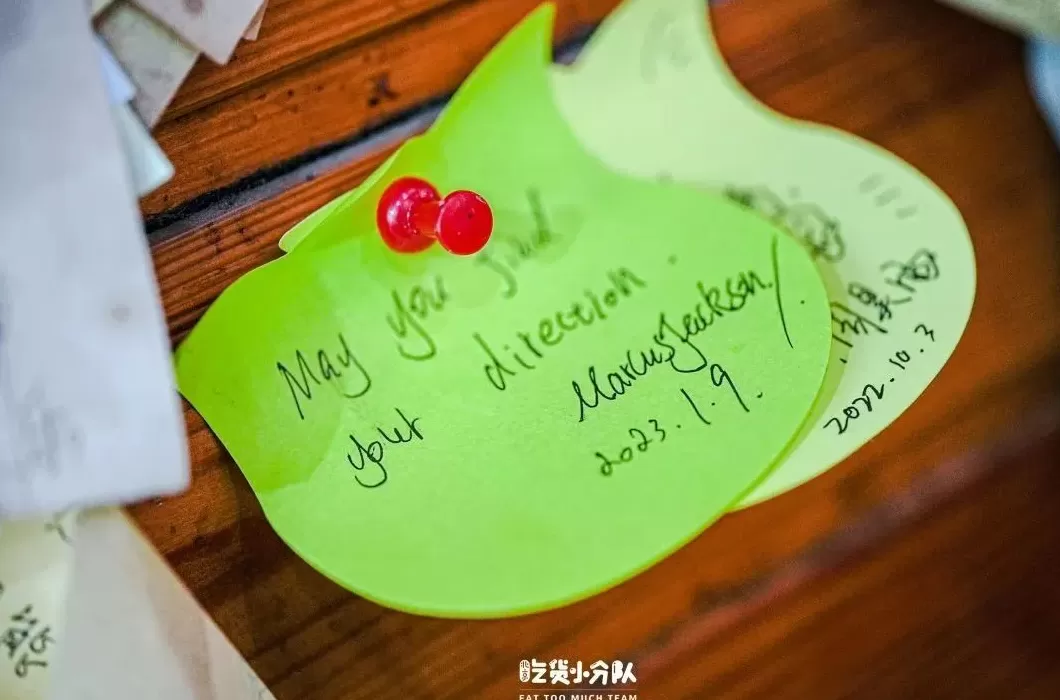 May you find
your direction.
Marcus Jackson/.
2023.1.9.
2022.10.3
北京吃货小分队
EAT TOO MUCH TEAM